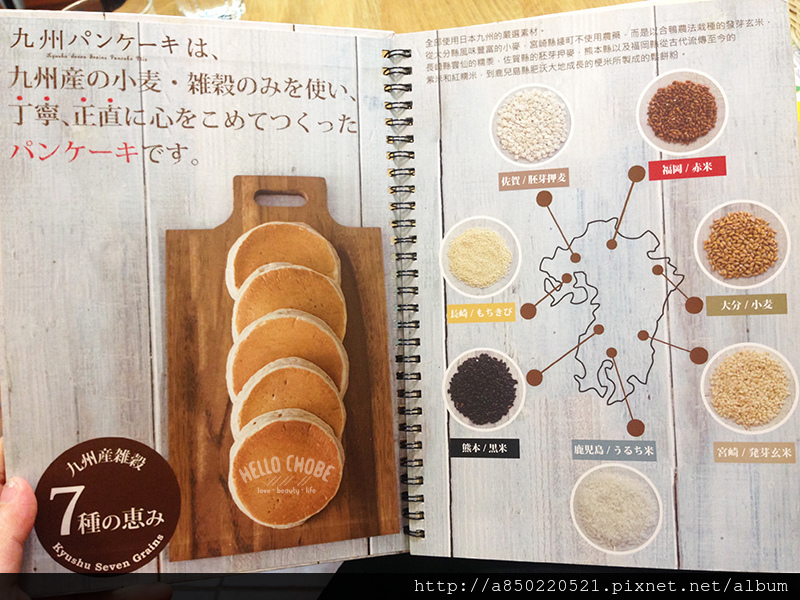 九州パンケーキは、
Kyushu Seven Grains Pancake Mix
九州産の小麦・雑穀のみを使い、
丁寧、正直に心をこめてつくった
パンケーキです。
HELLO CHOBE
love・beauty・life
九州産雑穀
7種の恵み
Kyushu Seven Grains
全部使用日本九州的嚴選素材。
從大分縣風味豐富的小麥，宮崎縣綾町不使用農藥，而是以合鴨農法栽種的發芽玄米，
長崎縣雲仙的糯黍，佐賀縣的胚芽押麥，熊本縣以及福岡縣從古代流傳至今的
紫米和紅糯米，到鹿兒島縣肥沃大地成長的梗米所製成的鬆餅粉。
佐賀 / 胚芽押麦
福岡 / 赤米
長崎 / もちきび
大分 / 小麦
熊本 / 黒米
鹿児島 / うるち米
宮崎 / 発芽玄米
http://a850220521.pixnet.net/album